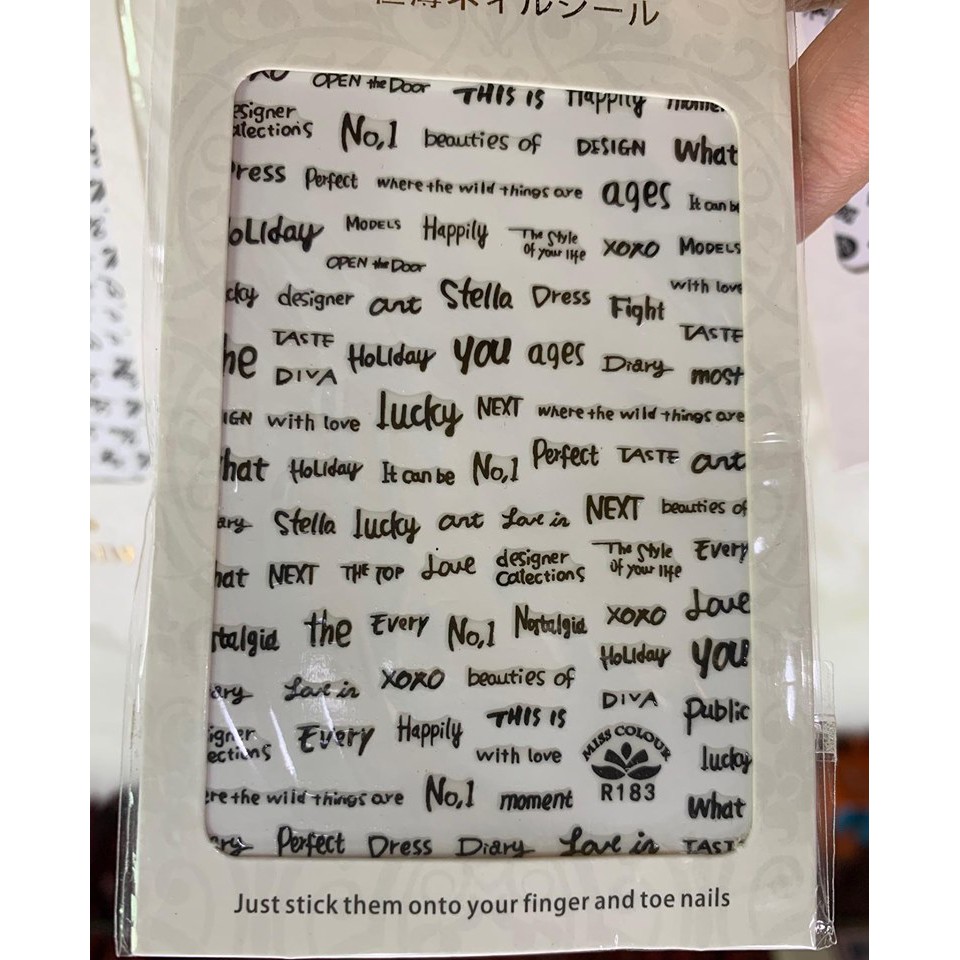 ネイルシール
XO OPEN the Door THIS IS Happily mome
esigner
alections No,1 beauties of DESIGN What
ress Perfect where the wild things are ages It can be
oliday MODELS Happily The Style
of your life XOXO MODELS
OPEN the Door
cky designer art Stella Dress Fight with love
he TASTE
DIVA Holiday you ages Diary TASTE
most
IGN with love lucky NEXT where the wild things are
hat Holiday It can be No,1 Perfect TASTE art
ary Stella lucky art Love in NEXT beauties of
hat NEXT THE TOP Love designer
Calections The Style
of your life Every
stalgia the Every No,1 Nostalgia XOXO Love
Holiday you
ary Love in XOXO beauties of DIVA public
igner
ections Every Happily THIS IS
with love MISS COLOUR lucky
R183
ere the wild things are No,1 moment What
ary Perfect Dress Diary Love in TAST
Just stick them onto your finger and toe nails